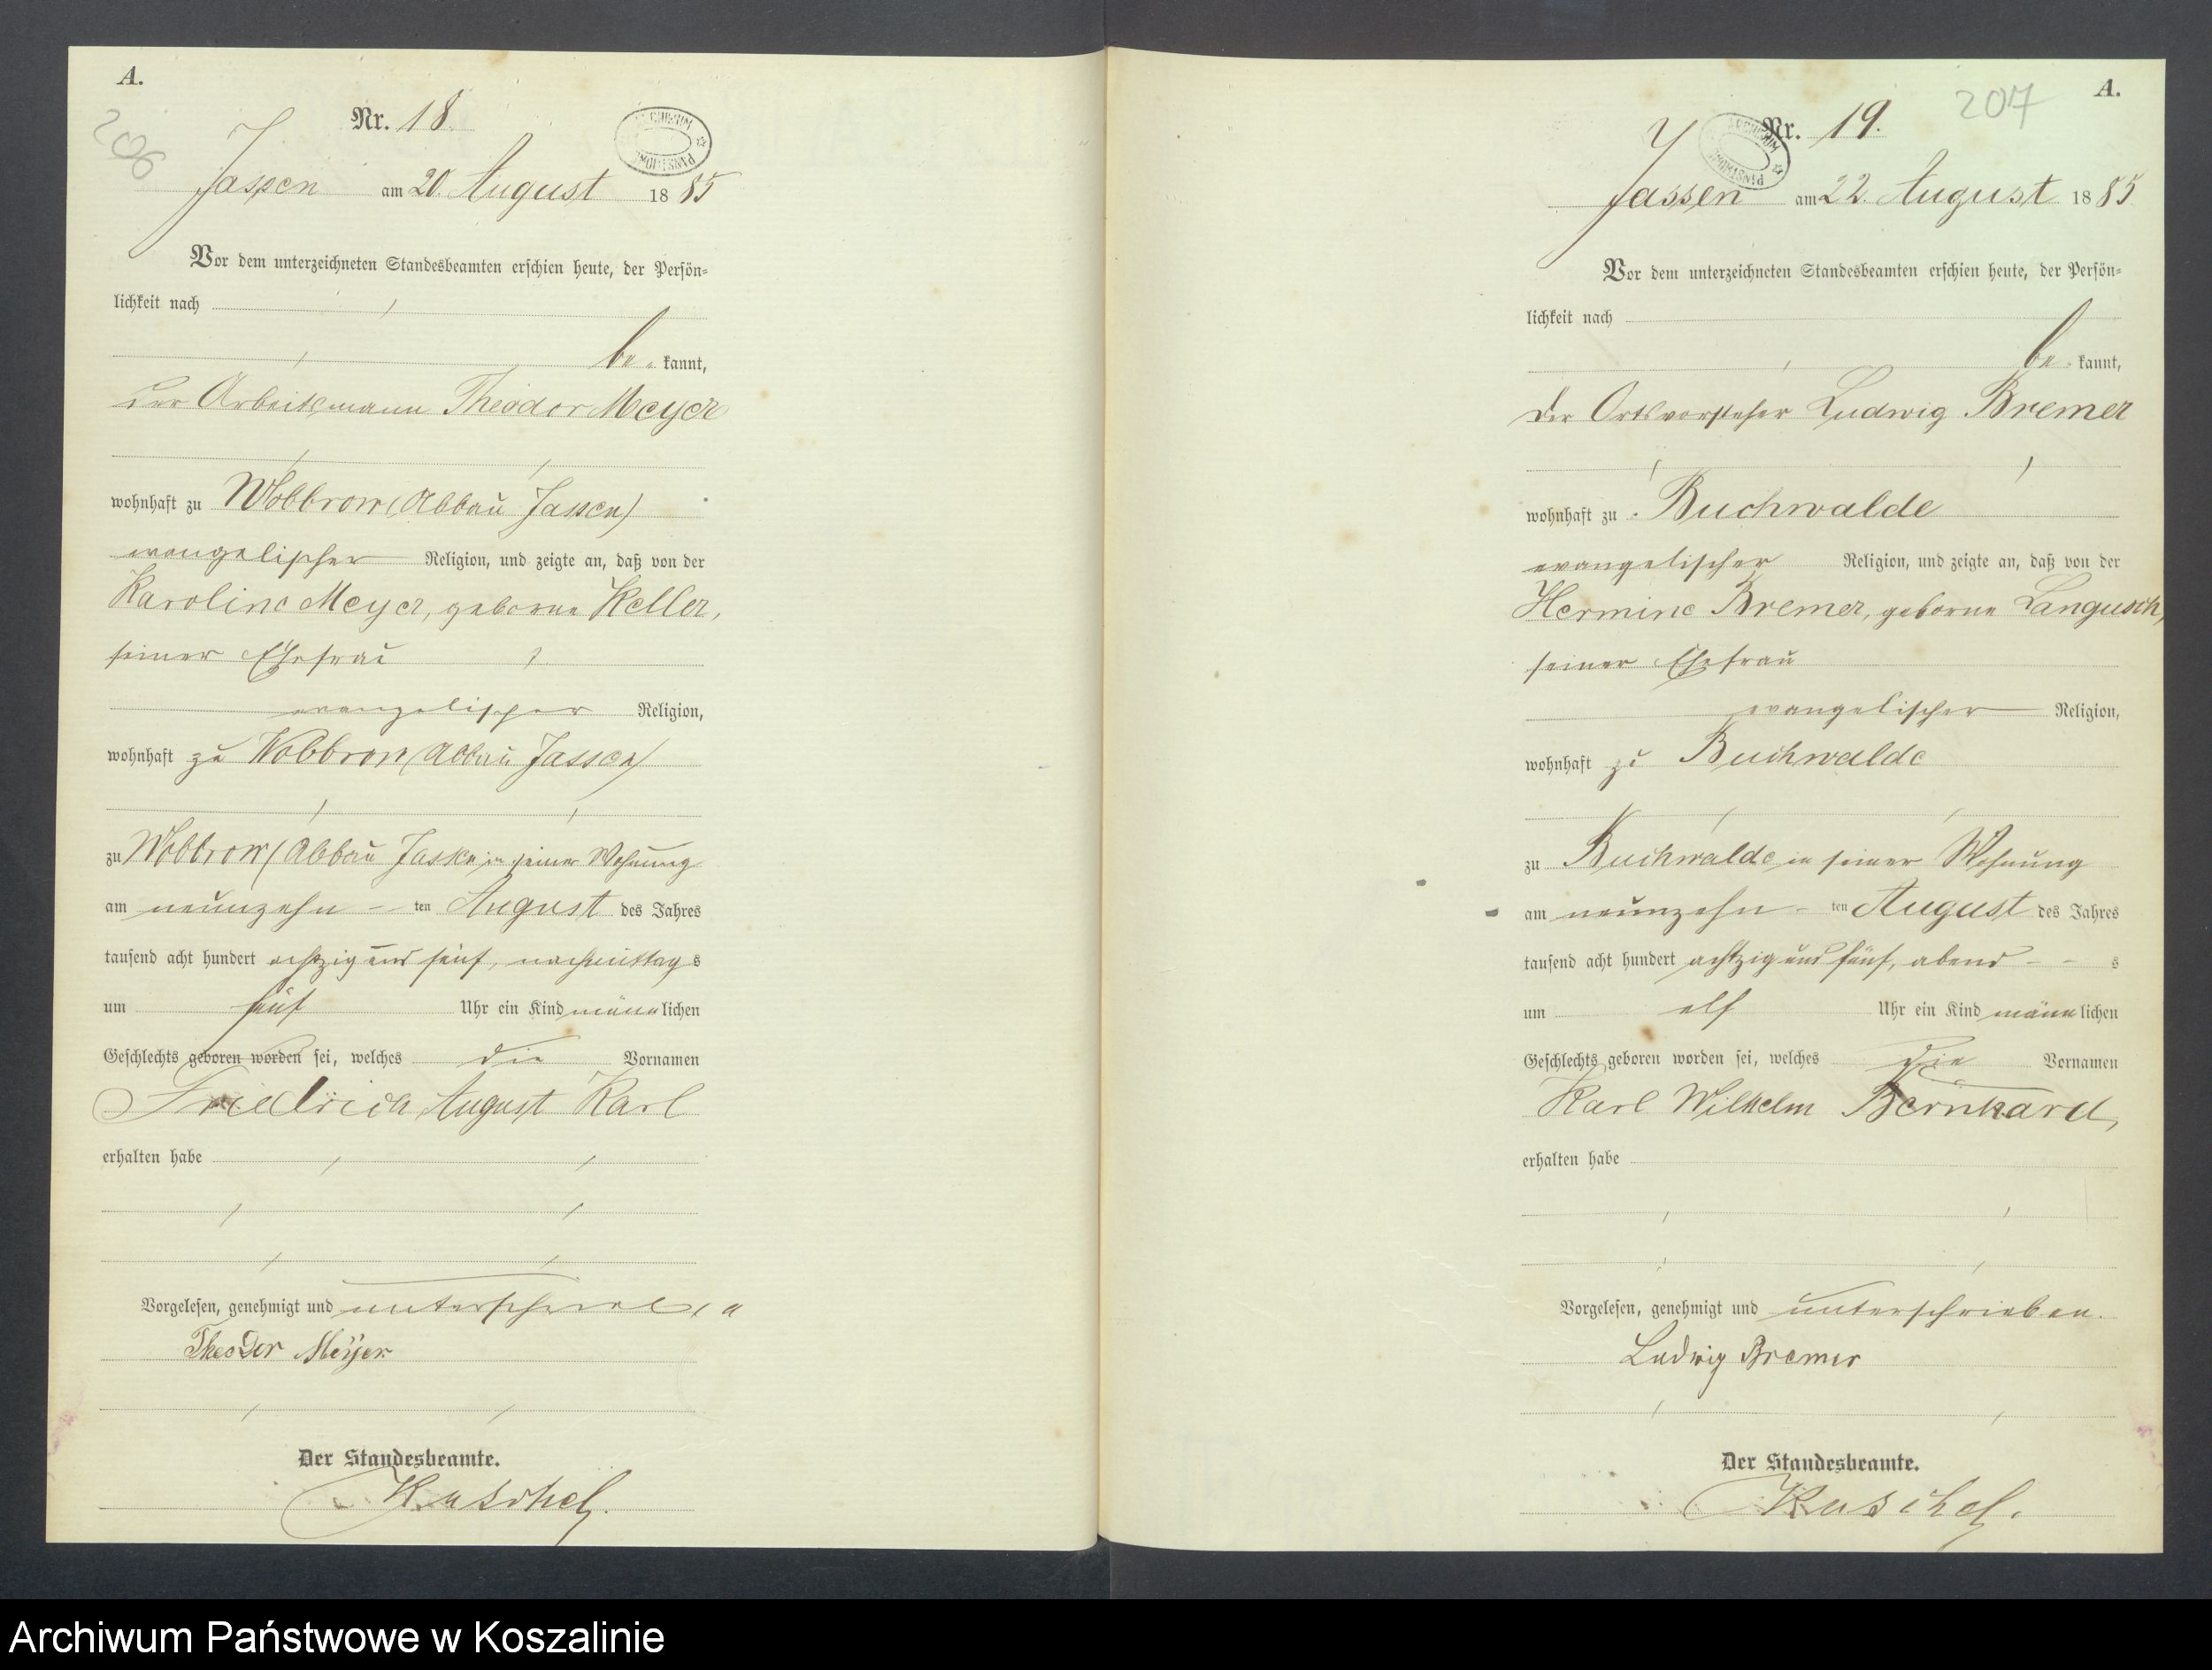 A.
206
Nr. 18.
ARCHIWUM PAŃSTWOWE
Jassen am 20. August 1885
Vor dem unterzeichneten Standesbeamten erschien heute, der Persön-
lichkeit nach
be kannt,
der Arbeitsmann Theodor Meyer
wohnhaft zu Wobbrow (Abbau Jassen)
evangelischer Religion, und zeigte an, daß von der
Karoline Meyer, geborne Keller,
seiner Ehefrau
evangelischer Religion,
wohnhaft zu Wobbrow (Abbau Jassen)
zu Wobbrow (Abbau Jassen in seiner Wohnung
am neunzehn ten August des Jahres
tausend acht hundert achtzig und fünf, nachmittag s
um fünf Uhr ein Kind männlichen
Geschlechts geboren worden sei, welches die Vornamen
Friedrich August Karl
erhalten habe
Vorgelesen, genehmigt und
Theodor Meijer
Der Standesbeamte.
Kuschel.
207
A.
Nr. 19.
ARCHIWUM PAŃSTWOWE
Jassen am 22. August 1885
Vor dem unterzeichneten Standesbeamten erschien heute, der Persön-
lichkeit nach
be kannt,
der Ortsvorsteher Ludwig Bremer
wohnhaft zu Buchwalde
evangelischer Religion, und zeigte an, daß von der
Hermine Bremer, geborne Langusch,
seiner Ehefrau
evangelischer Religion,
wohnhaft zu Buchwalde
zu Buchwalde in seiner Wohnung
am neunzehn ten August des Jahres
tausend acht hundert achtzig und fünf, abend s
um elf Uhr ein Kind männlichen
Geschlechts geboren worden sei, welches die Vornamen
Karl Wilhelm Bernhard,
erhalten habe
Vorgelesen, genehmigt und unterschrieben.
Ludwig Bremer
Der Standesbeamte.
Kuschel.
Archiwum Państwowe w Koszalinie